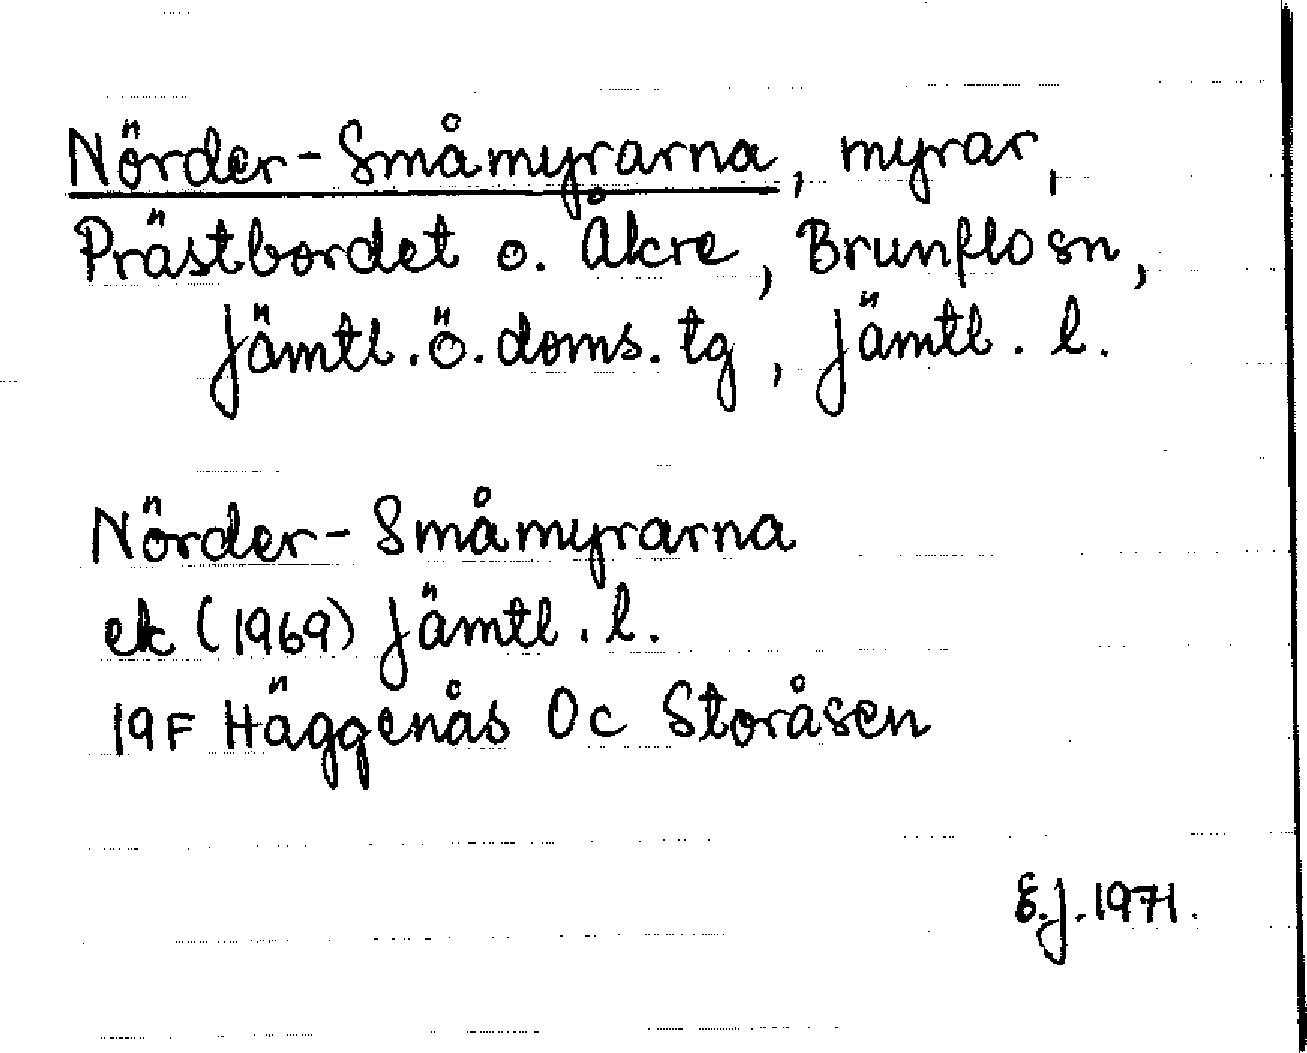 Nörder-Småmyrarna, myrar,
Prästbordet o. Åkre, Brunflo sn,
Jämtl. ö. doms. tg, Jämtl. l.
Nörder-Småmyrarna
ek (1969) Jämtl. l.
19F Häggenås 0c Storåsen
E.J. 1971.